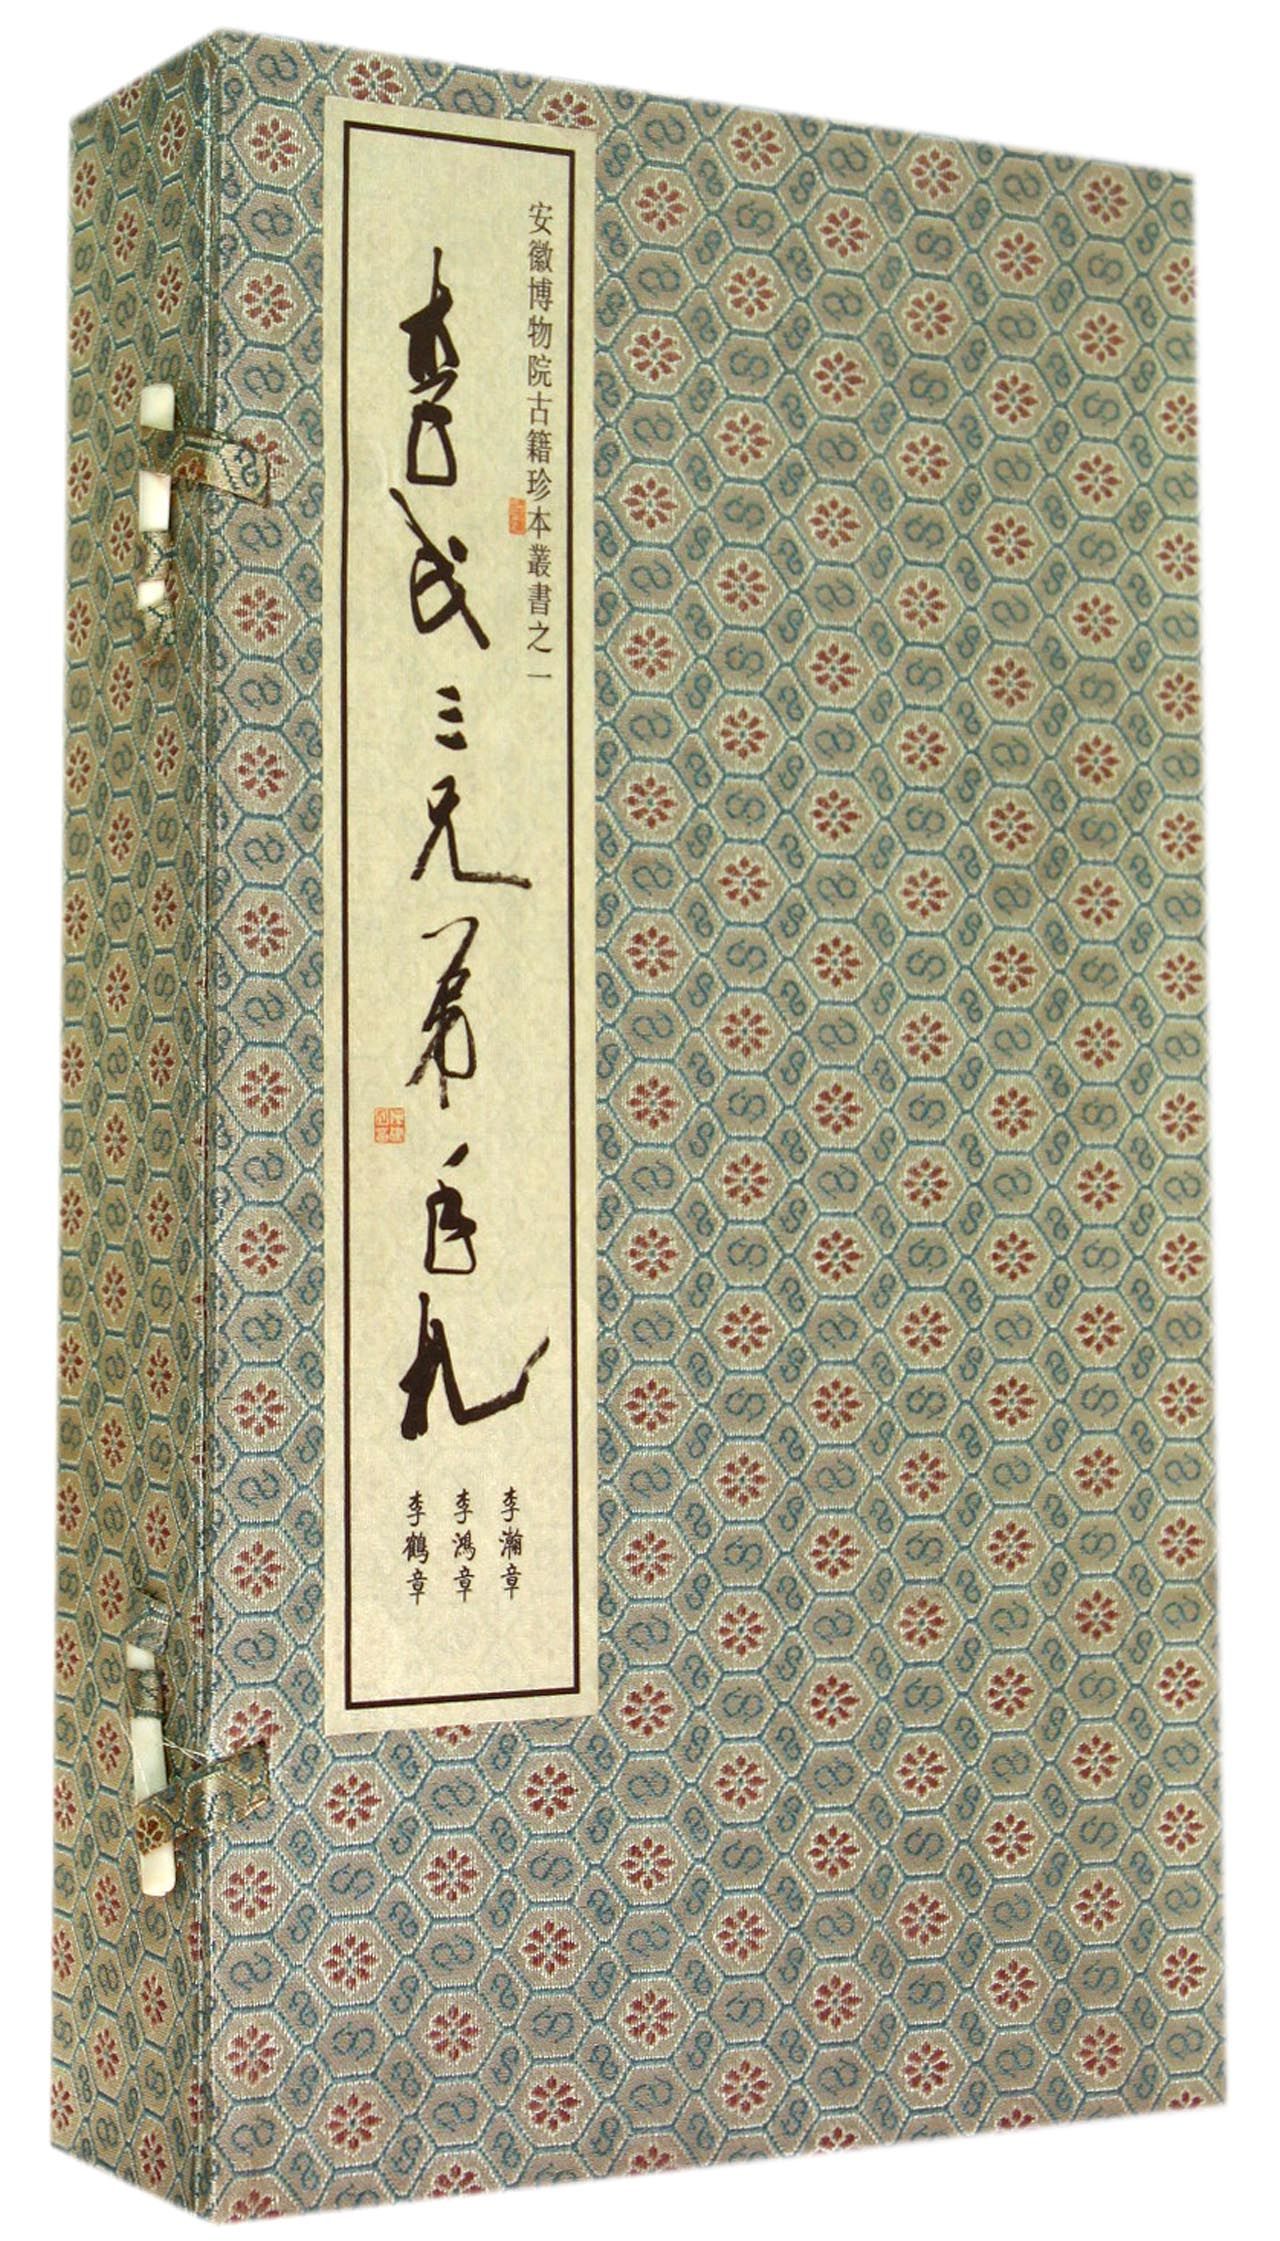 安徽博物院古籍珍本叢書之一
李氏三兄弟手札
李瀚章
李鴻章
李鶴章